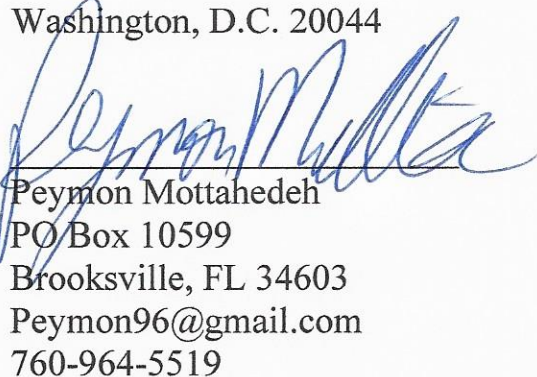 Washington, D.C. 20044
Peymon Mottahedeh
Peymon Mottahedeh
PO Box 10599
Brooksville, FL 34603
Peymon96@gmail.com
760-964-5519